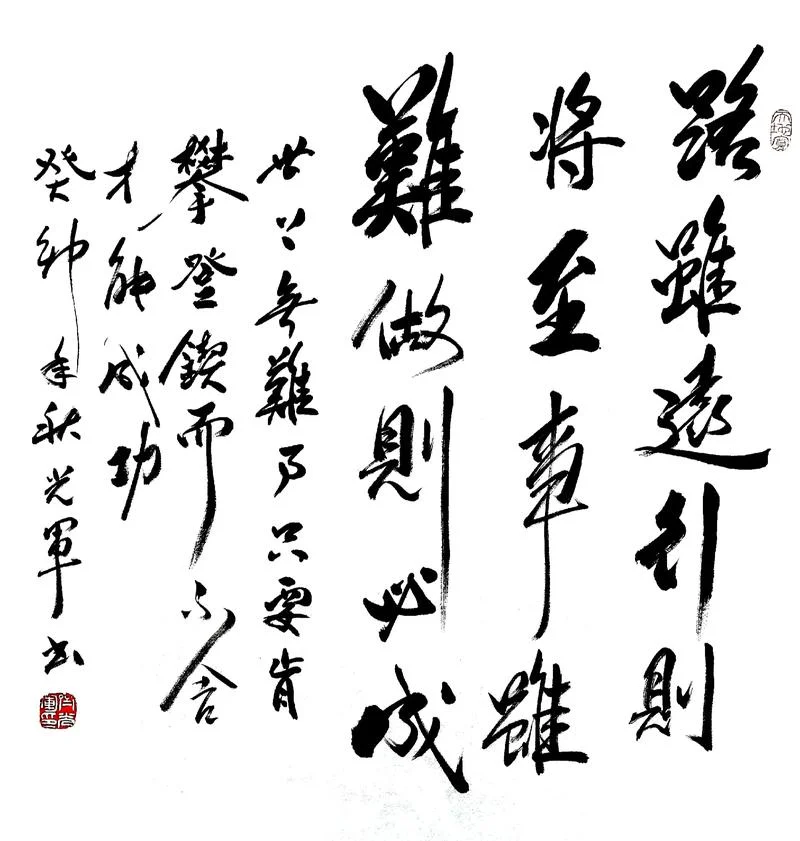 路雖遠行則
將至事雖
難做則必成
世上無難事只要肯
攀登鍥而不舍
才能成功
癸卯年秋光軍书